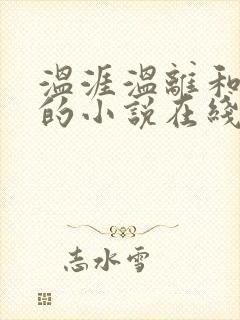 温涯温離和
的小说在綫
志水雪